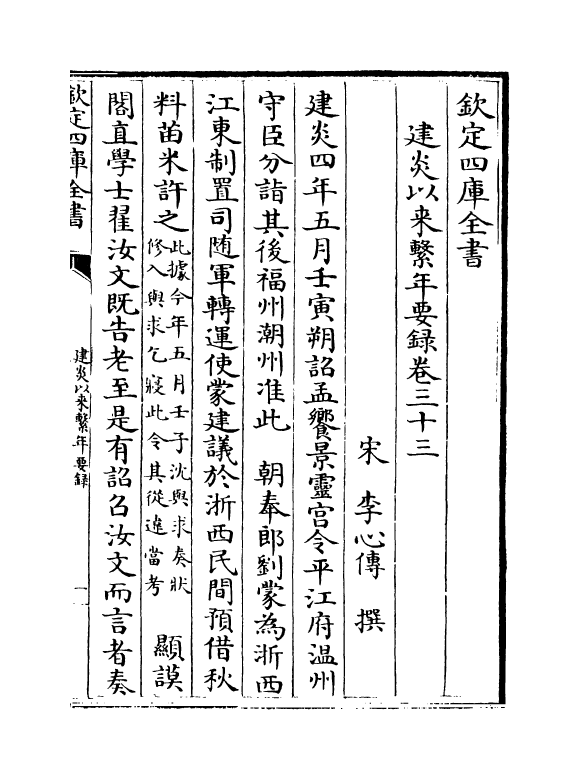 欽定四庫全書
建炎以来繫年要録卷三十三
宋 李心傳 撰
建炎四年五月壬寅朔詔孟饗景靈宫令平江府温州
守臣分詣其後福州潮州准此 朝奉郎劉蒙為浙西
江東制置司随軍轉運使蒙建議於浙西民間預借秋
料苗米許之此據今年五月壬子沈與求奏狀
修入與求乞寢此令其從違當考 顯謨
閣直學士翟汝文既告老至是有詔召汝文而言者奏
欽定四庫全書
建炎以来繫年要録
一